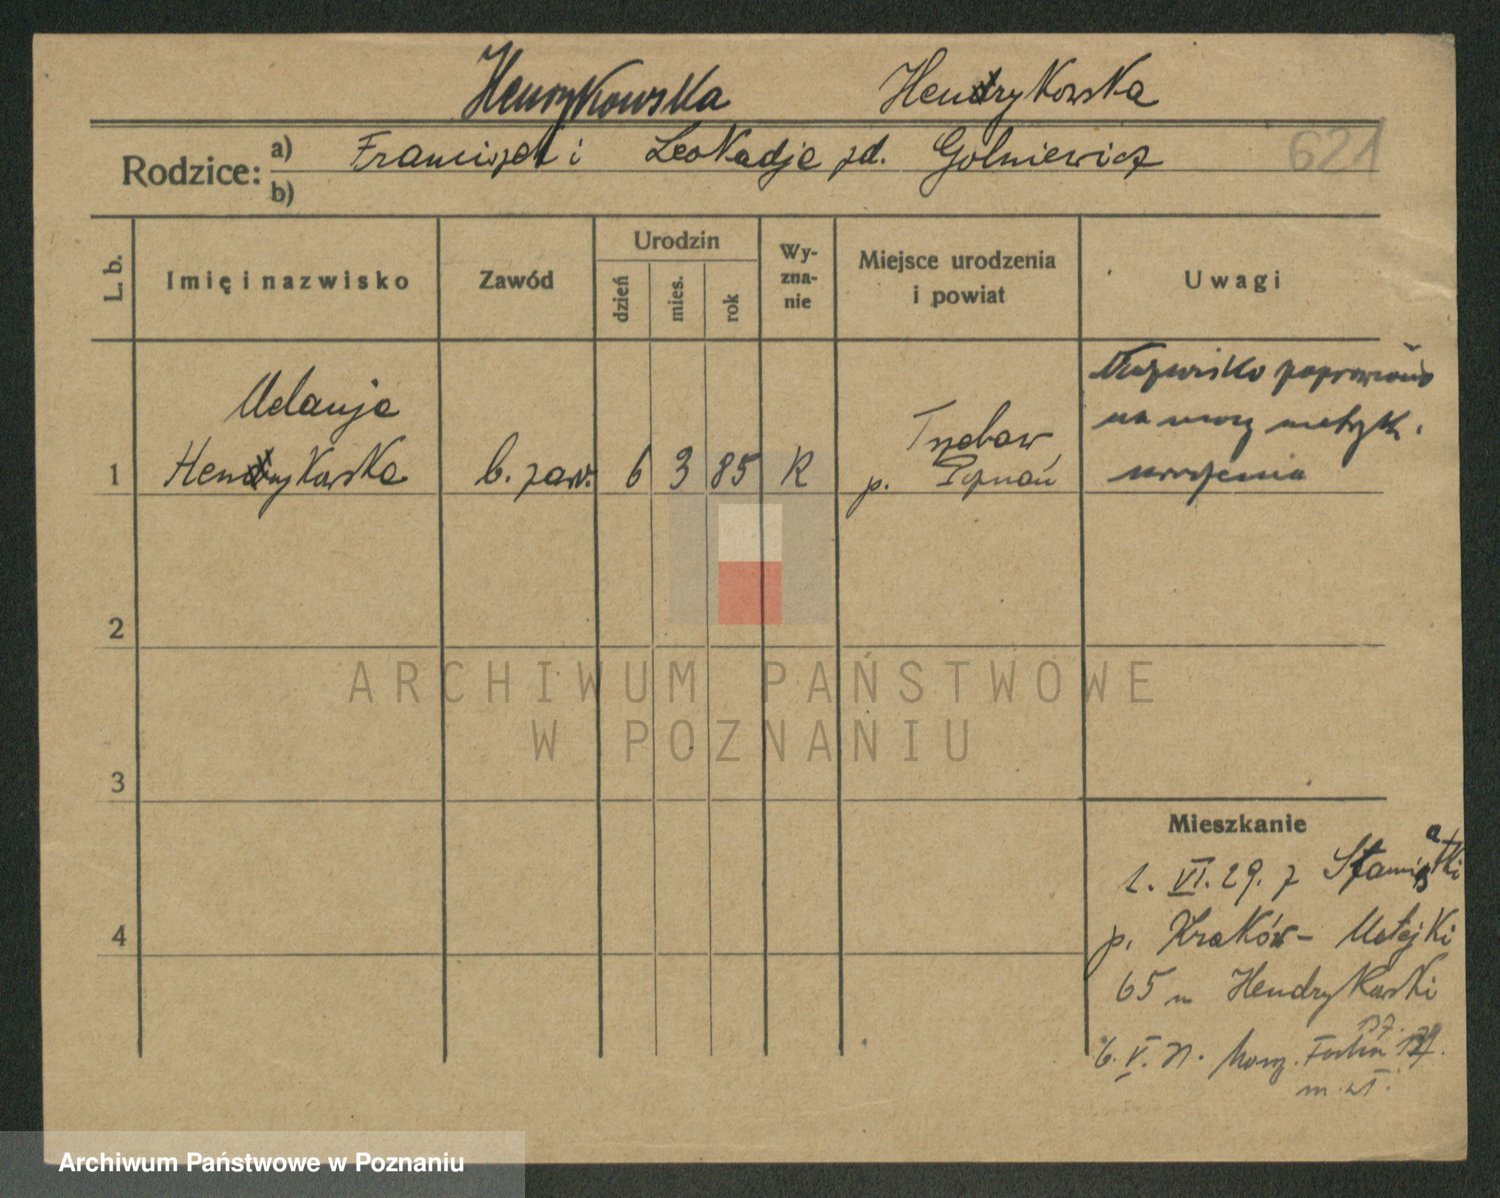 Henrykowska Hendrykowska
Rodzice: a) Franciszek i Leokadje zd. Golniewicz 621
b)
L. b. Imię i nazwisko Zawód Urodzin dzień mies. rok Wyznanie Miejsce urodzenia i powiat Uwagi
Melanja Trzebaw Nazwisko poprawiono
na mocy metryk.
1 Hendrykowska b. zaw. 6 3 85 R p. Poznań urodzenia
2
ARCHIWUM PAŃSTWOWE
W POZNANIU
3
Mieszkanie
1. VI. 29. z Staniątki
4 p. Kraków - Matejki
65 u Hendrykowski
137.
6. V. 31. Marsz. Focha
m. 21.
Archiwum Państwowe w Poznaniu